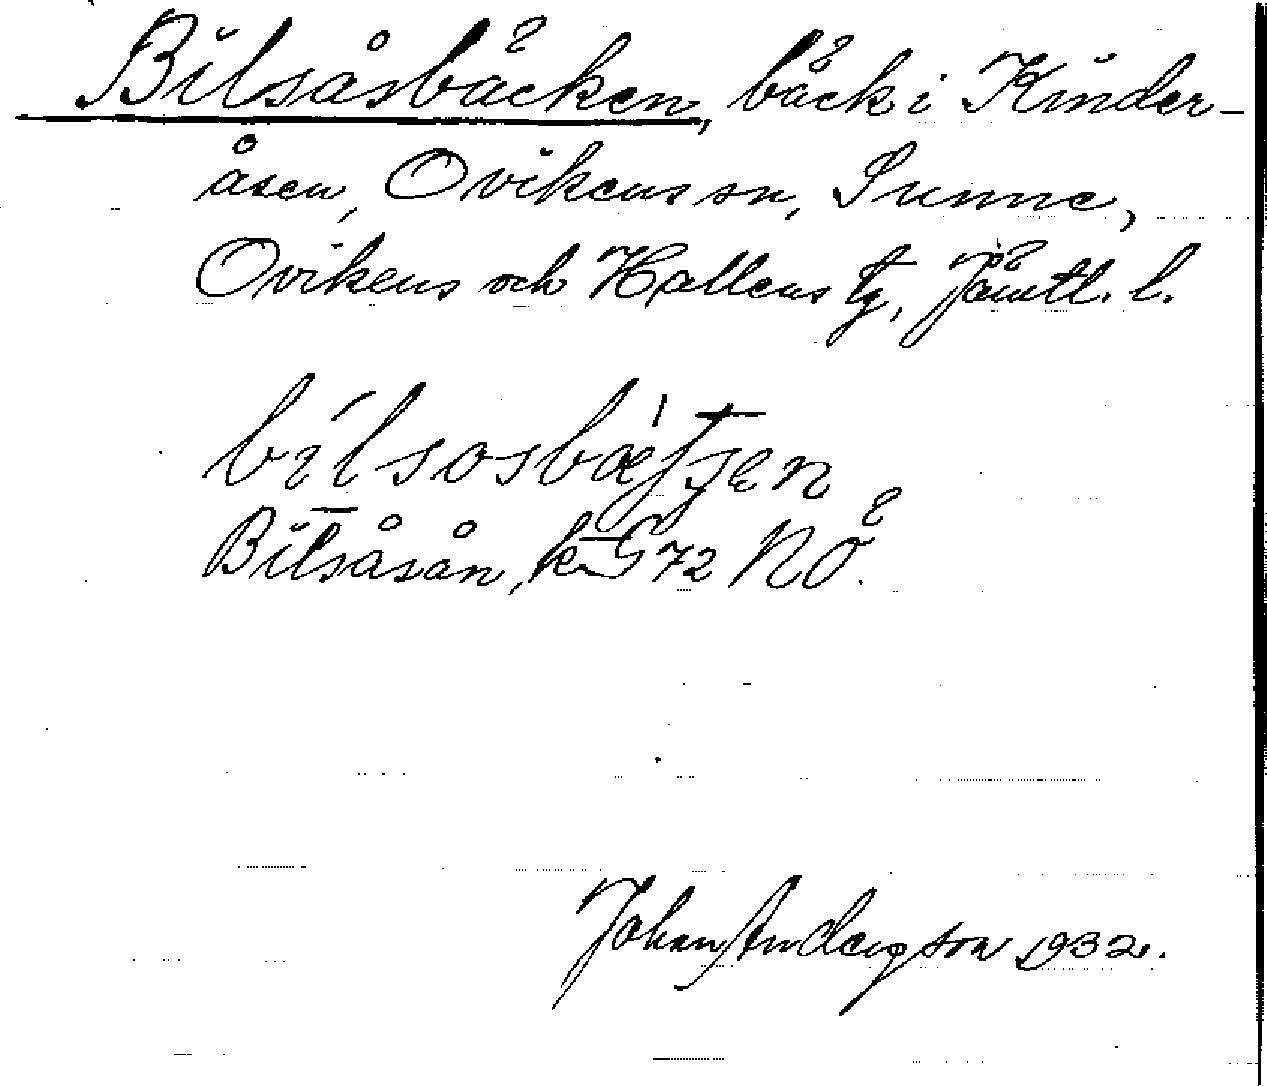 Bilsåsbäcken, bäck i Kinder-
åsen, Ovikens sn, Sunne,
Ovikens och Hallens tg, Jämtl. l.
bilsosbæ
Bilsåsån, k G 72 NÖ.
Johan Anderson 1932.